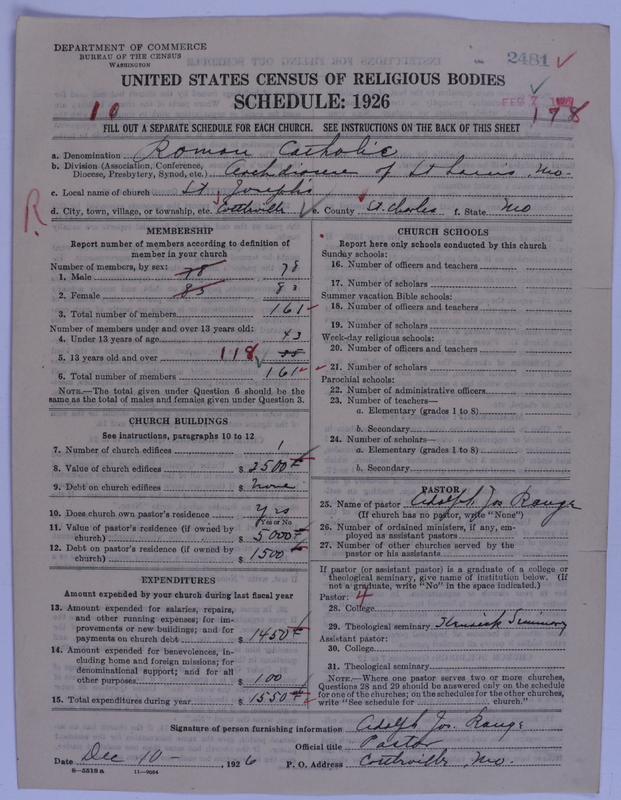 DEPARTMENT OF COMMERCE
BUREAU OF THE CENSUS
WASHINGTON
2481
UNITED STATES CENSUS OF RELIGIOUS BODIES
SCHEDULE: 1926
1 0
FEB 7
178
FILL OUT A SEPARATE SCHEDULE FOR EACH CHURCH. SEE INSTRUCTIONS ON THE BACK OF THIS SHEET
a. Denomination Roman Catholic
b. Division (Association, Conference, Diocese, Presbytery, Synod, etc.) Archdiocese of St Louis, Mo.
c. Local name of church St. Joseph's
d. City, town, village, or township, etc. Cottleville e. County St. Charles f. State Mo
R
MEMBERSHIP
Report number of members according to definition of
member in your church
Number of members, by sex:
1. Male 78 78
2. Female 83 83
3. Total number of members 161
Number of members under and over 13 years old:
4. Under 13 years of age 43
5. 13 years old and over 118
6. Total number of members 161
NOTE.—The total given under Question 6 should be the
same as the total of males and females given under Question 3.
CHURCH BUILDINGS
See instructions, paragraphs 10 to 12
7. Number of church edifices 1
8. Value of church edifices $ 2500
9. Debt on church edifices $ None
10. Does church own pastor's residence Yes
(Yes or No)
11. Value of pastor's residence (if owned by
church) $ 5000
12. Debt on pastor's residence (if owned by
church) $ 1500
EXPENDITURES
Amount expended by your church during last fiscal year
13. Amount expended for salaries, repairs,
and other running expenses; for im-
provements or new buildings; and for
payments on church debt $ 1450
14. Amount expended for benevolences, in-
cluding home and foreign missions; for
denominational support; and for all
other purposes $ 100
15. Total expenditures during year $ 1550
CHURCH SCHOOLS
Report here only schools conducted by this church
Sunday schools:
16. Number of officers and teachers
17. Number of scholars
Summer vacation Bible schools:
18. Number of officers and teachers
19. Number of scholars
Week-day religious schools:
20. Number of officers and teachers
21. Number of scholars
Parochial schools:
22. Number of administrative officers
23. Number of teachers—
a. Elementary (grades 1 to 8)
b. Secondary
24. Number of scholars—
a. Elementary (grades 1 to 8)
b. Secondary
PASTOR
25. Name of pastor Adolph Jos Rauge
(If church has no pastor, write "None")
26. Number of ordained ministers, if any, em-
ployed as assistant pastors
27. Number of other churches served by the
pastor or his assistants
If pastor (or assistant pastor) is a graduate of a college or
theological seminary, give name of institution below. (If
not a graduate, write "No" in the space indicated.)
Pastor: 4
28. College
29. Theological seminary Kenrick Seminary
Assistant pastor:
30. College
31. Theological seminary
NOTE.—Where one pastor serves two or more churches,
Questions 28 and 29 should be answered only on the schedule
for one of the churches; on the schedules for the other churches,
write "See schedule for church."
Signature of person furnishing information Adolph Jos. Rauge
Official title Pastor
Date Dec 10 - , 1926 P. O. Address Cottleville, Mo.
8—5518 a 11—9064